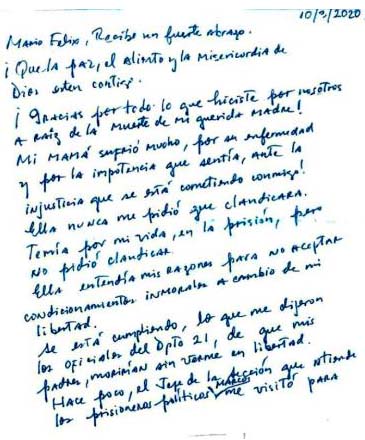 10/9/2020
Mario Felix, Recibe un fuerte abrazo.
¡Que la paz, el aliento y la misericordia de
Dios esten contigo.
¡Gracias por todo lo que hiciste por nosotros
a raíz de la muerte de mi querida madre!
Mi mamá sufrió mucho, por su enfermedad
y por la impotencia que sentía, ante la
injusticia que se está cometiendo conmigo!
Ella nunca me pidió que claudicara.
Temía por mi vida, en la prisión, pero
no pidió claudicar.
Ella entendía mis razones para no aceptar
condicionamientos inmorales a cambio de mi
libertad.
Se está cumpliendo, lo que me dijeron
los oficiales del Dpto 21, de que mis
padres, morirían sin verme en libertad.
Hace poco, el Jefe de la sección que atiende
los prisioneros políticos, Marcos me visitó para